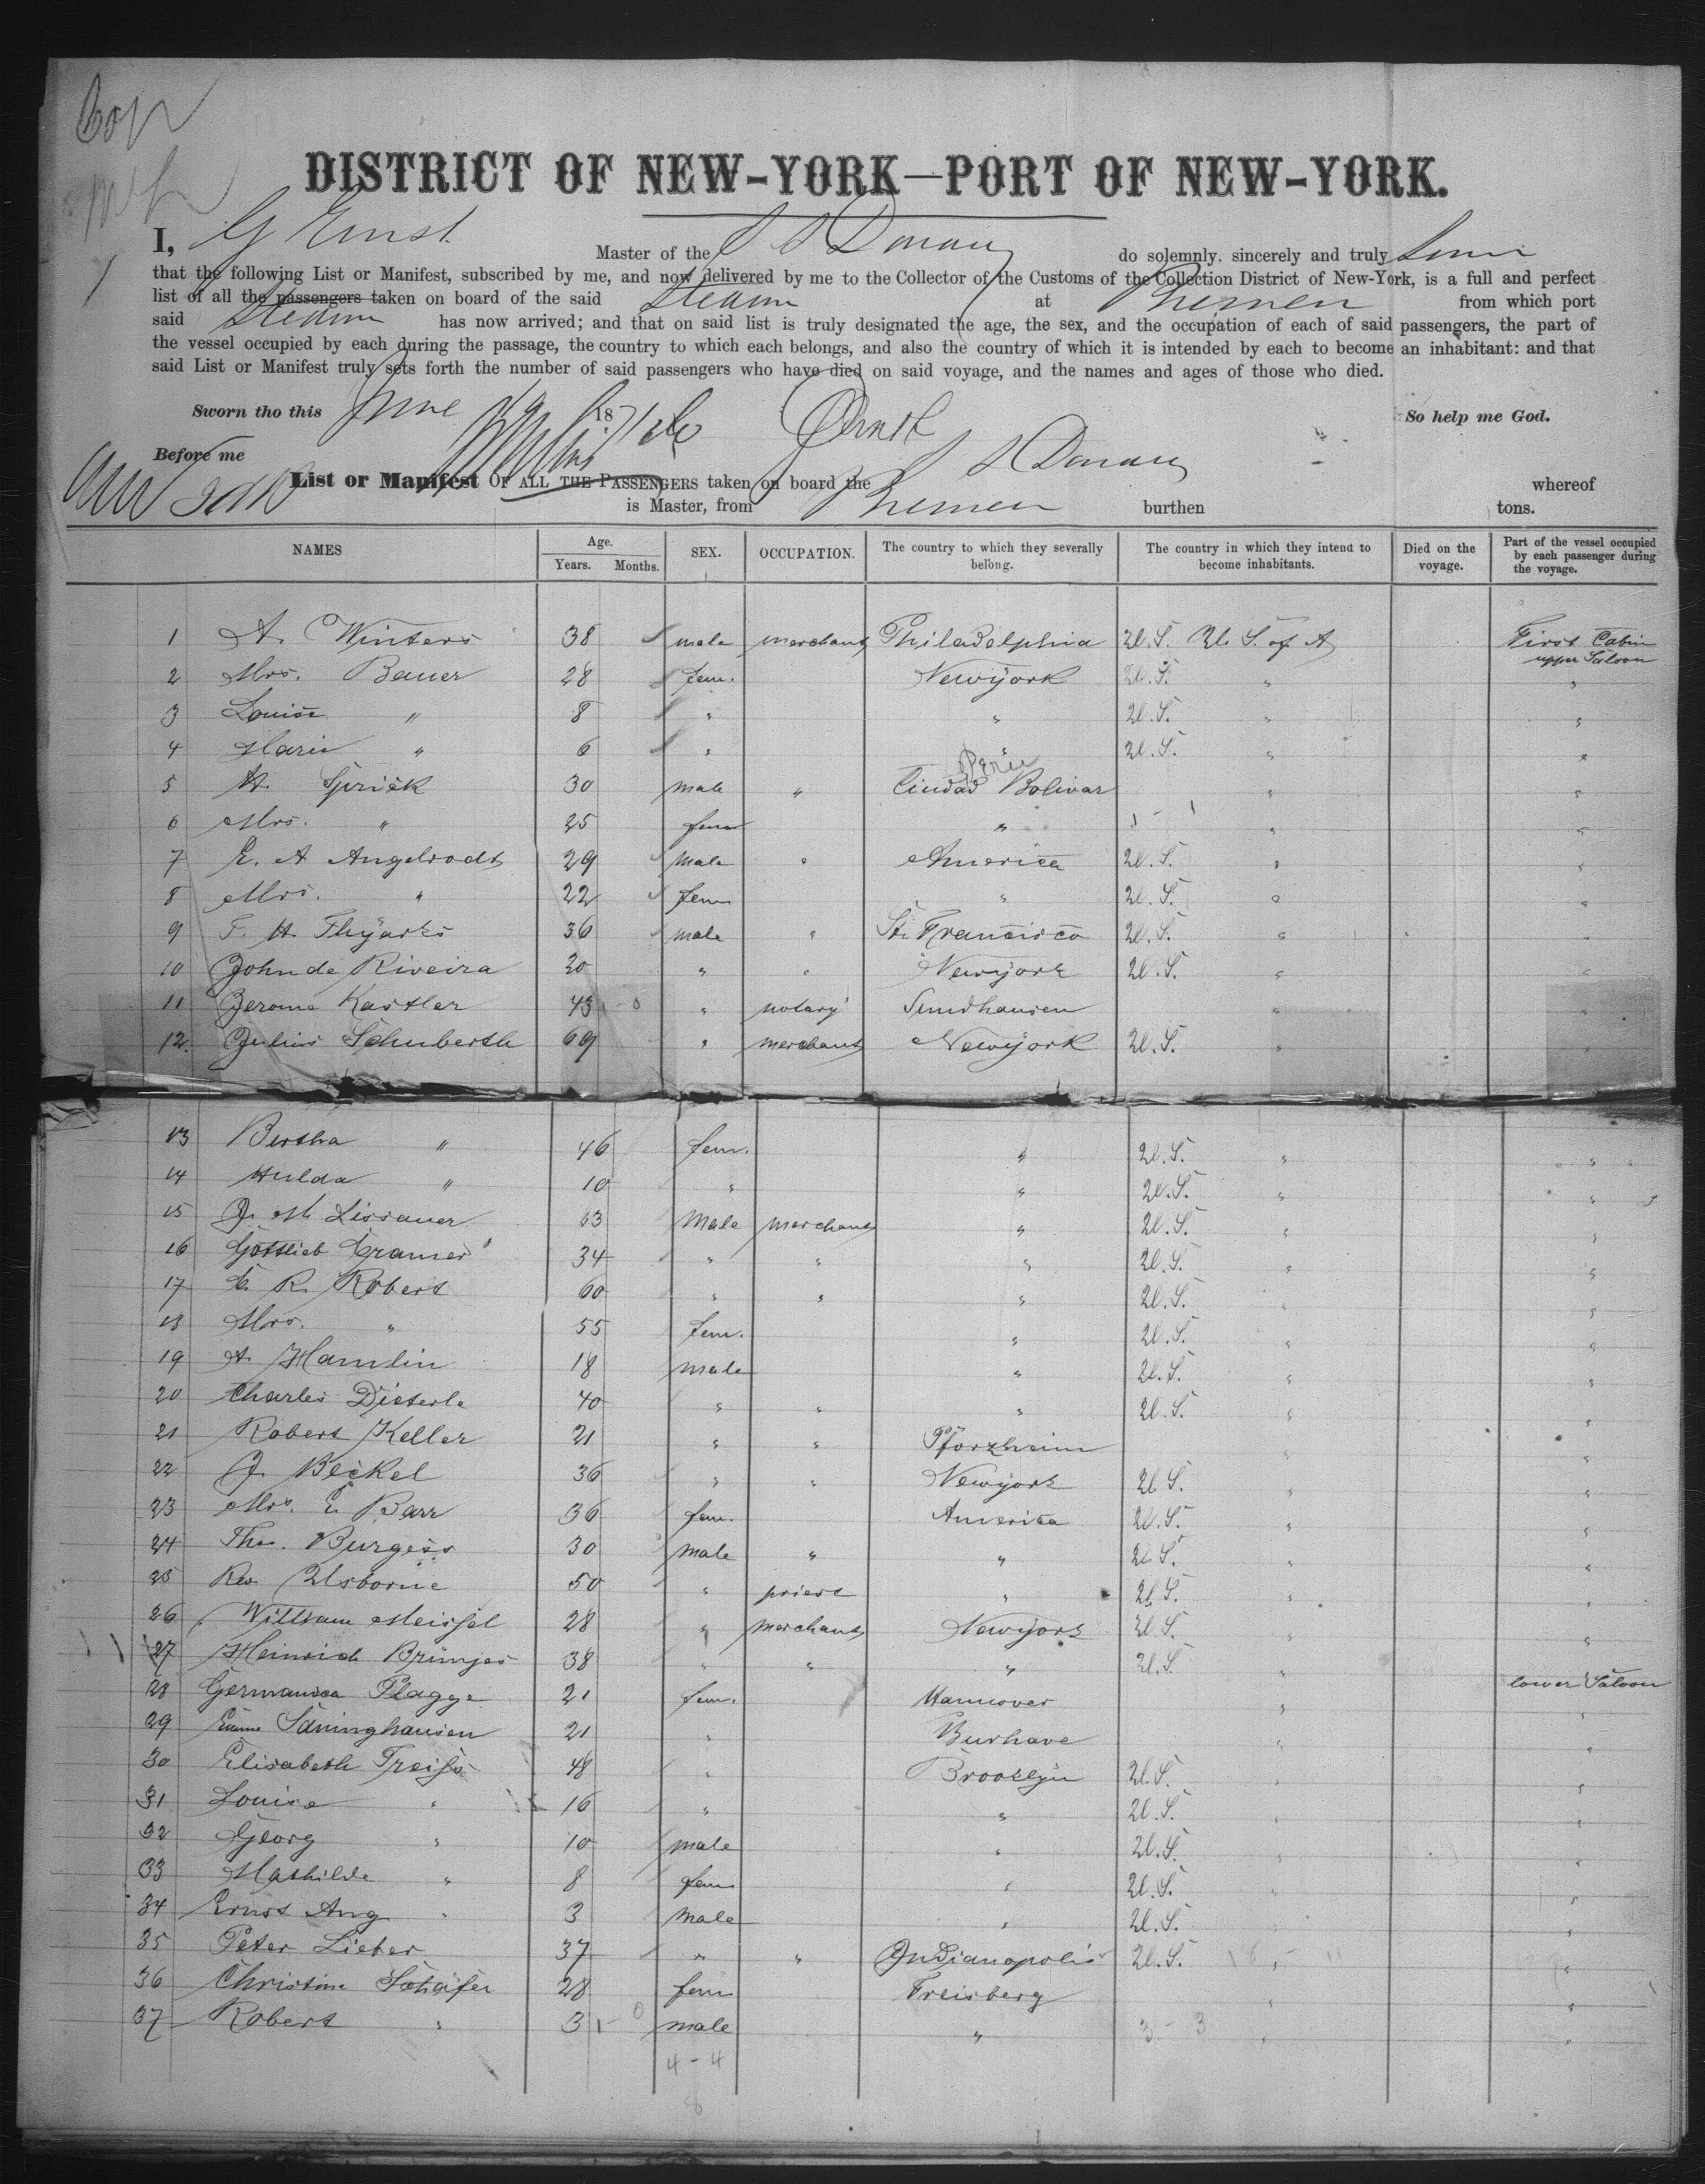 DISTRICT OF NEW-YORK—PORT OF NEW-YORK.
I, G Ernst Master of the S S Donau do solemnly. sincerely and truly
that the following List or Manifest, subscribed by me, and now delivered by me to the Collector of the Customs of the Collection District of New-York, is a full and perfect
list of all the passengers taken on board of the said Steam at Bremen from which port
said Steam has now arrived; and that on said list is truly designated the age, the sex, and the occupation of each of said passengers, the part of
the vessel occupied by each during the passage, the country to which each belongs, and also the country of which it is intended by each to become an inhabitant: and that
said List or Manifest truly sets forth the number of said passengers who have died on said voyage, and the names and ages of those who died.
Sworn tho this June 187 Ernst So help me God.
Before me
List or Manifest OF ALL THE PASSENGERS taken on board the S S Donau whereof
is Master, from Bremen burthen tons.
NAMES Age. Years. Months. SEX. OCCUPATION. The country to which they severally belong. The country in which they intend to become inhabitants. Died on the voyage. Part of the vessel occupied by each passenger during the voyage.
1 A. Winters 38 male merchant Philadelphia U. S. U. S. of A First Cabin upper Saloon
2 Mrs. Bauer 28 fem. Newyork U. S. " "
3 Louise " 8 " " U. S. " "
4 Marie " 6 " " U. S. " "
Peru
5 H. Sprick 30 male " Ciudad Bolivar " "
6 Mrs. " 25 fem " " "
7 E. A Angelrodt 29 male " America U. S. " "
8 Mrs. " 22 fem " U. S. " "
9 F. H. Thyarks 36 male " St. Francisco U. S. " "
10 John de Riveira 20 " " Newyork U. S. " "
11 Jerome Kastler 43 " notary Sundhausen " "
12 Julius Schuberth 69 " merchant Newyork U. S. " "
13 Bertha " 46 fem. " U. S. " "
14 Hulda " 10 " " U. S. " "
15 J. M Lissauer 63 male merchant " U. S. " "
16 Gottlieb Cramer 34 " " " U. S. " "
17 C. R. Robert 60 " " " U. S. " "
18 Mrs. " 55 fem. " U. S. " "
19 A. Hamlin 18 male " U. S. " "
20 Charles Dieterle 40 " " " U. S. " "
21 Robert Keller 21 " " Pforzheim " "
22 J. Beckel 36 " " Newyork U. S. " "
23 Mrs. E. Barr 36 fem. America U. S. " "
24 Tho. Burgess 30 male " " U. S. " "
25 Rev. Usborne 50 " priest " U. S. " "
26 William Meissel 28 " merchant Newyork U. S. " "
27 Heinrich Brünjes 38 " " " U. S. " lower Saloon
28 Germanica Plagge 21 fem. Hannover " "
29 Emma Säninghausen 21 " Burhave " "
30 Elisabeth Treiss 48 " Brooklyn U. S. " "
31 Louise " 16 " " U. S. " "
32 Georg " 10 male " U. S. " "
33 Mathilde " 8 fem " U. S. " "
34 Ernst Aug " 3 male " U. S. " "
35 Peter Lieber 37 " " Indianopolis U. S. " "
36 Christine Schäfer 28 fem Freisberg " "
37 Robert " 3 male " 3 - 3 " "
4 - 4
8